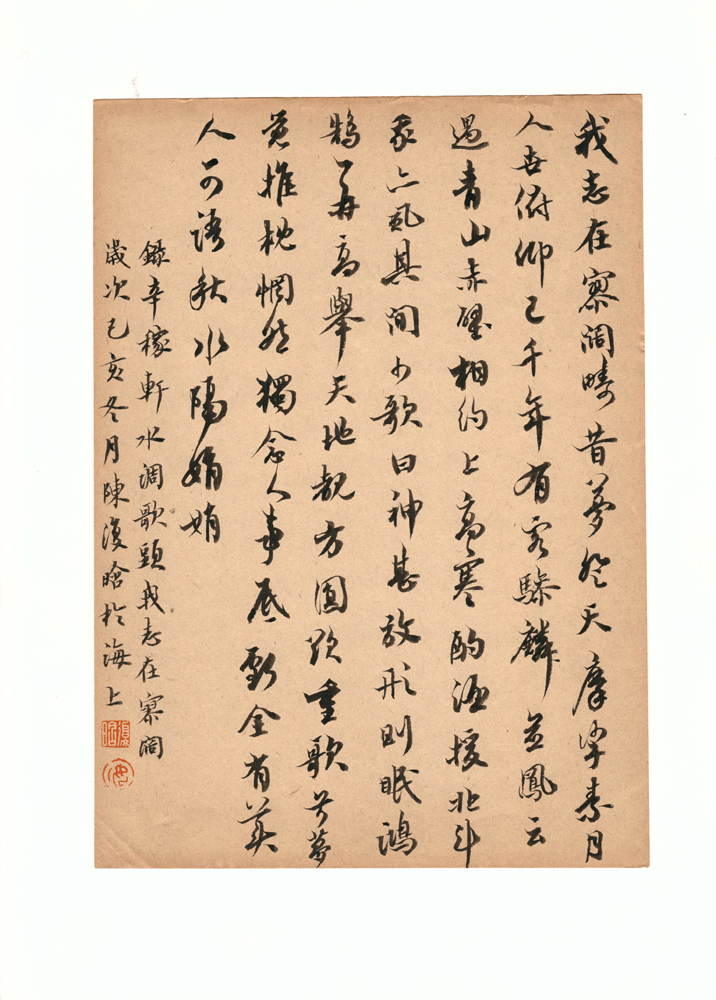 我志在寥闊疇昔夢登天摩挲素月
人世俯仰已千年有客驂麟並鳳云
遇青山赤壁相約上高寒酌酒援北斗
我亦虱其間少歌曰神甚放形則眠鴻
鵠一再高舉天地覩方圓欲重歌兮夢
覺推枕惘然獨念人事底虧全有美
人可語秋水隔娟娟
錄辛稼軒水調歌頭我志在寥闊
歲次己亥冬月陳澓晗於海上